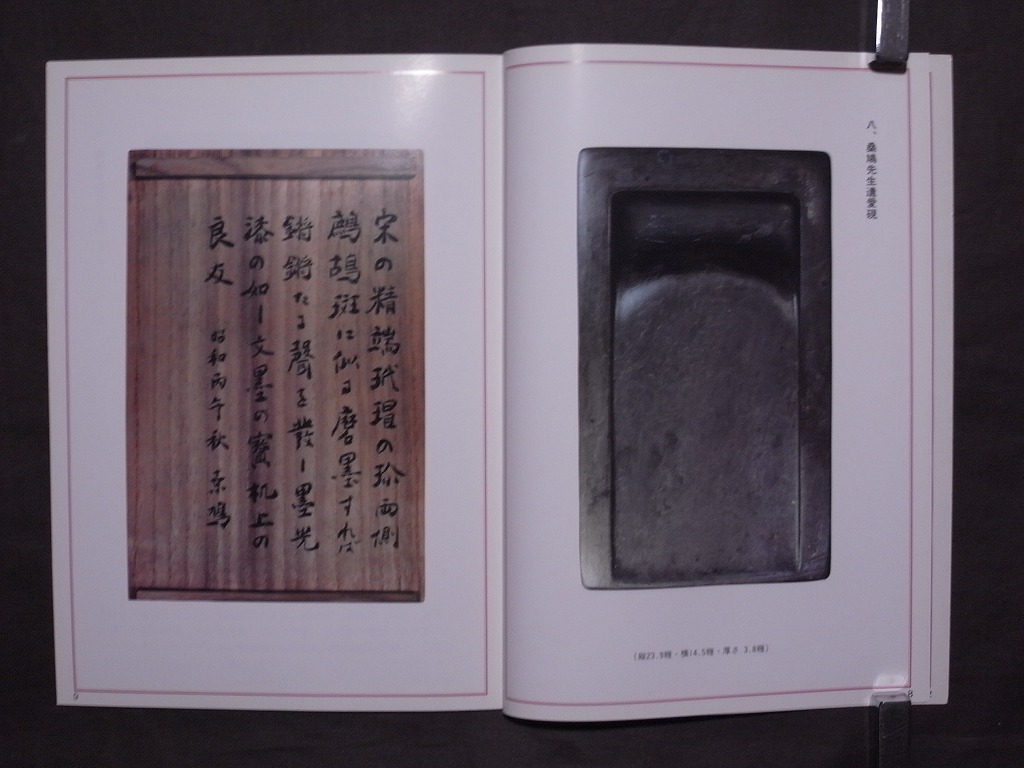 八、桑鳩先生遺愛硯
(縦23.9糎・横14.5糎・厚さ 3.8糎)
8
宋の精端玳瑁の珍両側
鷓鴣斑に似る磨墨すれば
鏘鏘たる聲を發し墨光
漆の如し文墨の寶机上の
良友 昭和丙午秋 桑鳩
9